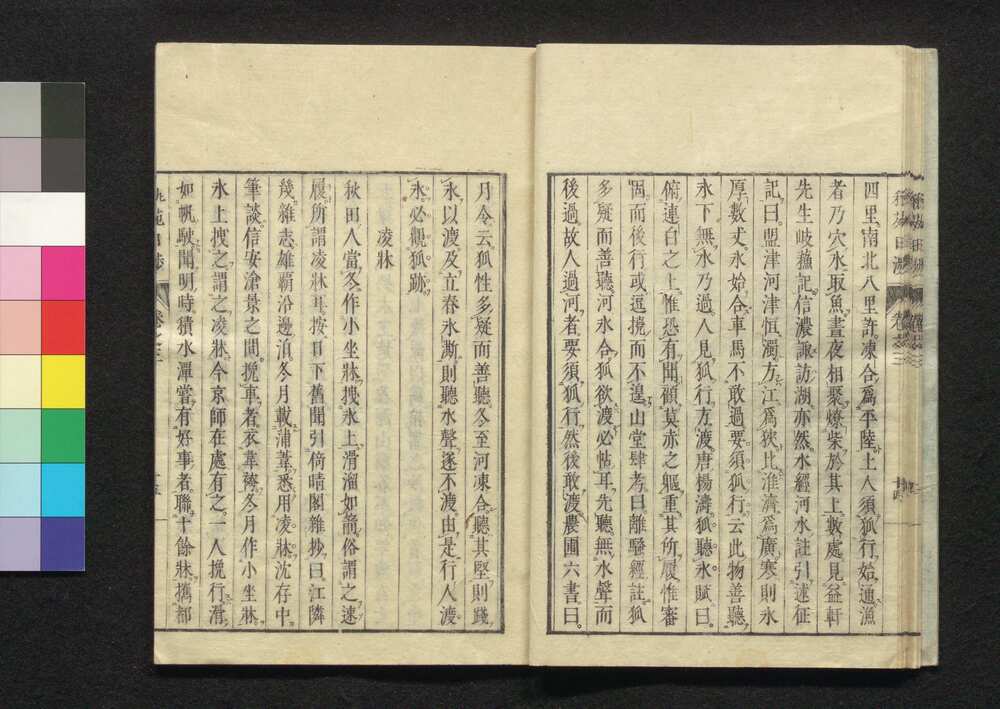 四里南北八里許凍合爲平陸土人須狐行始通漁
者乃穴氷取魚晝夜相聚燎柴於其上數處見益軒
先生岐蘓記信濃諏訪湖亦然水經河水註引述征
記曰盟津河津恒濁方江爲狹比淮濟爲廣寒則氷
厚數丈氷始合車馬不敢過要須狐行云此物善聽
氷下無水乃過人見狐行方渡唐楊濤狐聽氷賦曰
俯連白之上惟恐有聞顧莫赤之軀重其所履惟審
固而後行或逗撓而不遑山堂肆考曰離騷經註狐
多疑而善聽河氷合狐欲渡必帖耳先聽無水聲而
後過故人過河者要須狐行然後敢渡農圃六書曰
月令云狐性多疑而善聽冬至河凍合聽其堅則踐
氷以渡及立春氷澌則聽水聲遂不渡由是行人渡
氷必觀狐跡
凌牀
秋田人當冬作小坐牀拽氷上滑溜如箭俗謂之速
履所謂凌牀耳按日下舊聞引倚晴閣雜抄曰江隣
幾雜志雄霸沿邊泊冬月載蒲葦悉用凌牀沈存中
筆談信安滄景之間挽車者衣韋袴冬月作小坐牀
氷上拽之謂之凌牀今京師在處有之一人挽行滑
如帆駛聞明時積水潭嘗有好事者聯十餘牀攜都